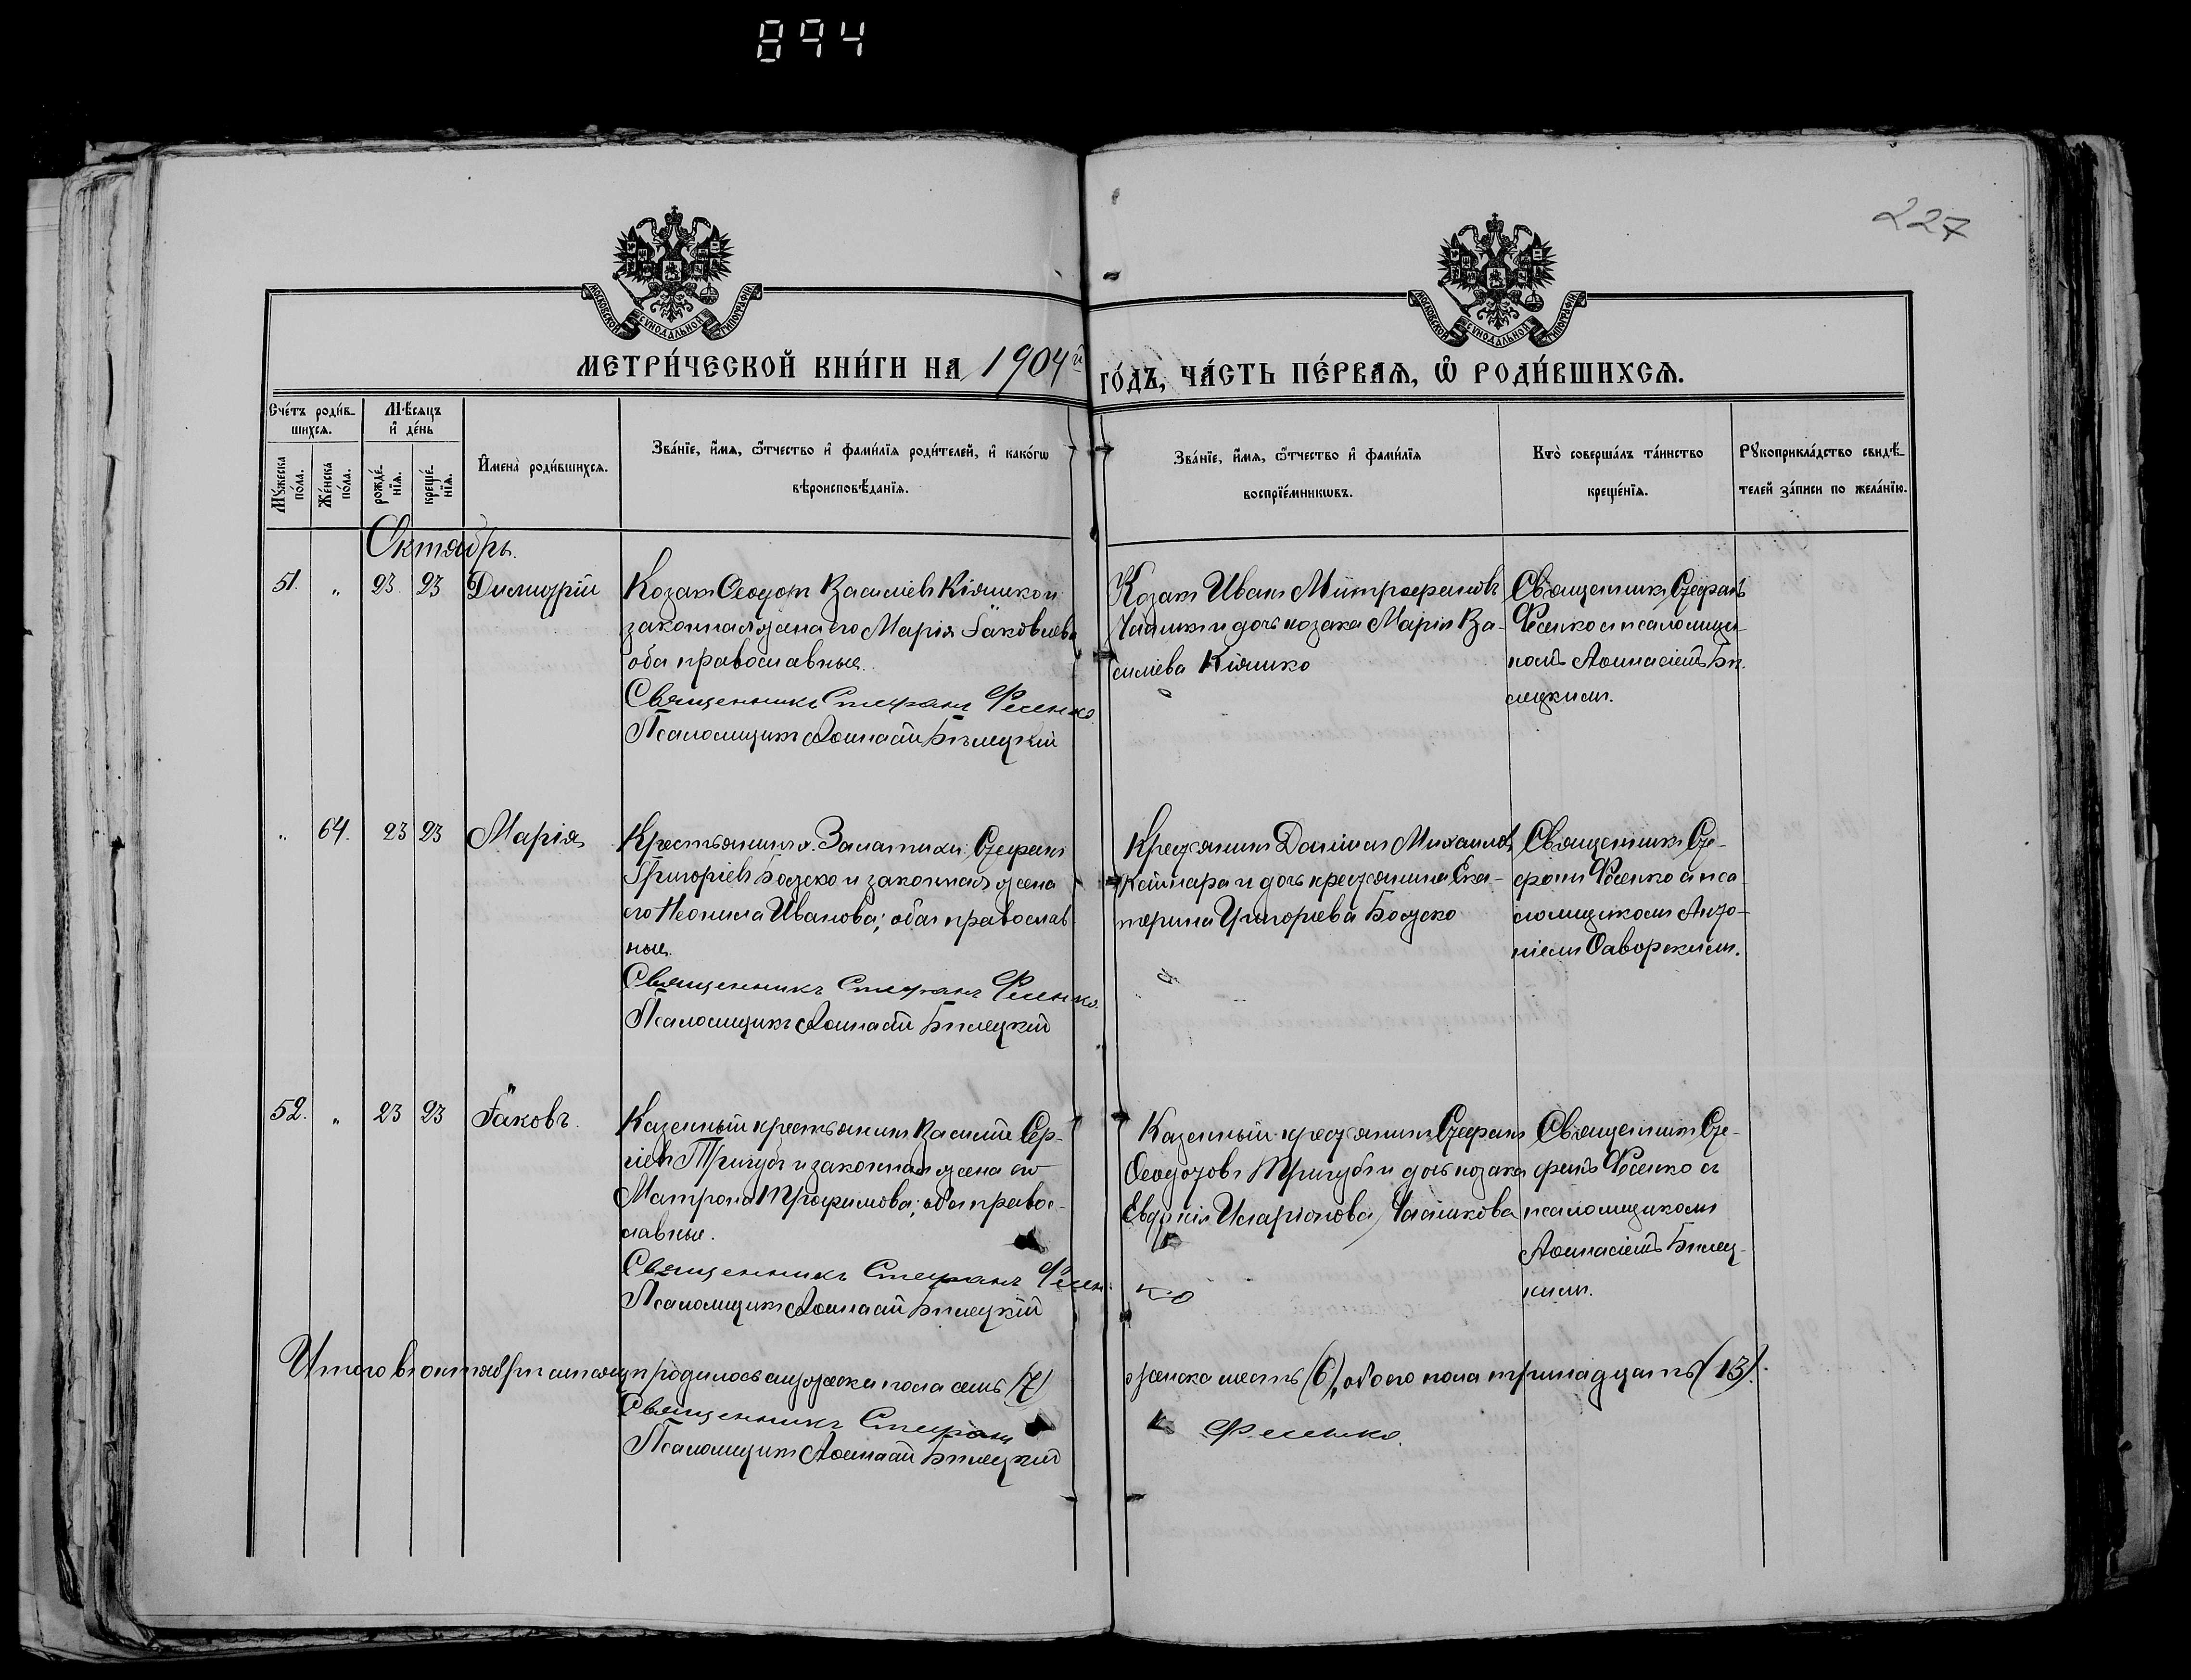 894
227
МОСКОВСКОЙ СУНОДАЛЬНОЙ ТИПОГРАФІИ
МОСКОВСКОЙ СУНОДАЛЬНОЙ ТИПОГРАФІИ
МЕТРИ́ЧЕСКОЙ КНИ́ГИ НА 1904й ГО́ДЪ, ЧА́СТЬ ПЕ́РВАѦ, Ѽ РОДИ́ВШИХСѦ.
Сче́тъ роди́в-
шихсѧ.
Мѣ́сѧцъ
и҆ де́нь
Мꙋ́жеска по́ла.
Же́нска по́ла.
рожде́-
нїѧ.
креще́-
нїѧ.
И҆мена̀ роди́вшихсѧ.
Зва́нїе, и҆́мѧ, ѻ҆́тчество и҆ фами́лїѧ роди́телей, и҆ како́гѡ
вѣроисповѣ́данїѧ.
Зва́нїе, и҆́мѧ, ѻ҆́тчество и҆ фами́лїѧ
воспрїе́мникѡвъ.
Кто̀ соверша́лъ та́инство
креще́нїѧ.
Рꙋкоприкла́дство свидѣ́-
телей за́писи по жела́нїю.
Октябрь.
51. „ 23 23 Димитрій
Козакъ Ѳеодотъ Василіевъ Кіяшко и
законная жена его Марія Іаковлева
оба православные.
Священникъ Стефанъ Фесенко.
Псаломщикъ Аѳанасій Бѣлецкій
Козакъ Иванъ Митрофановъ
и дочь козака Марія Ва-
силіева Кіяшко
Священникъ Стефанъ
Фесенко съ псаломщи-
комъ Аѳанасіемъ Би-
лецкимъ.
„ 64. 23 23 Марія
Крестьянинъ Стефанъ
Григоріевъ Божко и законная жена
его Неонила Иванова; оба православ-
ные.
Священникъ Стефанъ Фесенко.
Псаломщикъ Аѳанасій Билецкій
Крестьянинъ Даніилъ Михаиловъ
и дочь крестьянина Ека-
терина Григорьева Божко
Священникъ Сте-
фанъ Фесенко съ пса-
ломщикомъ Анто-
ніемъ Ѳаворскимъ.
52. „ 23 23 Іаковъ.
Казенный крестьянинъ Василій Сер-
гіевъ Тригубъ и законная жена его
Матрона Трофимова; оба право-
славные.
Священникъ Стефанъ Фесен-
ко
Псаломщикъ Аѳанасій Билецкій
Казенный крестьянинъ Стефанъ
Ѳеодотовъ Тригубъ и дочь козака
Евдокія Иларіонова
Священникъ Сте-
фанъ Фесенко съ
псаломщикомъ
Аѳанасіемъ Билец-
кимъ.
Итого въ октябрѣ мѣсяцѣ родилось мужеска пола семь (7)
женска шесть (6), обоего пола тринадцать (13).
Священникъ Стефанъ Фесенко.
Псаломщикъ Аѳанасій Билецкій